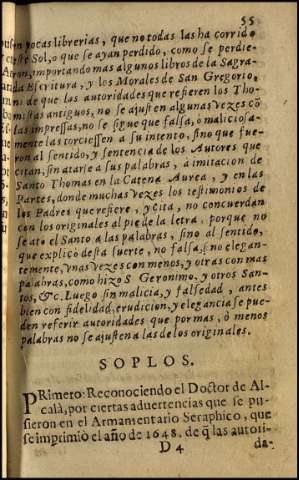 55
pocas librerias, que no todas las ha corrido
este Sol, o que se ayan perdido, como se perdie-
ron, importando mas algunos libros de la Sagra-
da Escritura, y los Morales de San Gregorio.
ni de que las autoridades que refieren los Tho-
mistas antiguos, no se ajusten algunas vezes cō
las impressas, no se sigue que falsa, ò maliciosa-
mente las torciessen a su intento, sino que fue-
ron al sentido, y sentencia de los Autores que
citan, sin atarle a sus palabras, à imitacion de
Santo Thomas en la Catena Aurea, y en las
Partes, donde muchas vezes los testimonios de
los Padres que refiere, y cita, no concuerdan
con los originales al pie de la letra, porque no
se ato el Santo a las palabras, sino al sentido,
que explicò desta suerte, no falsa, si no elegan-
temente, vnas vezes con menos, y otras con mas
palabras, como hizo S Geronimo, y otros San-
tos, &c. Luego sin malicia, y falsedad, antes
bien con fidelidad, erudicion, y elegancia se pue-
den referir autoridades que por mas, ò menos
palabras no se ajusten a las de los originales.
SOPLOS.
PRimero: Reconociendo el Doctor de Al-
calà, por ciertas aduertencias que se pu-
sieron en el Armamentario Seraphico, que
se imprimiò el año de 1648. de q̃ las autori-
D 4 da-